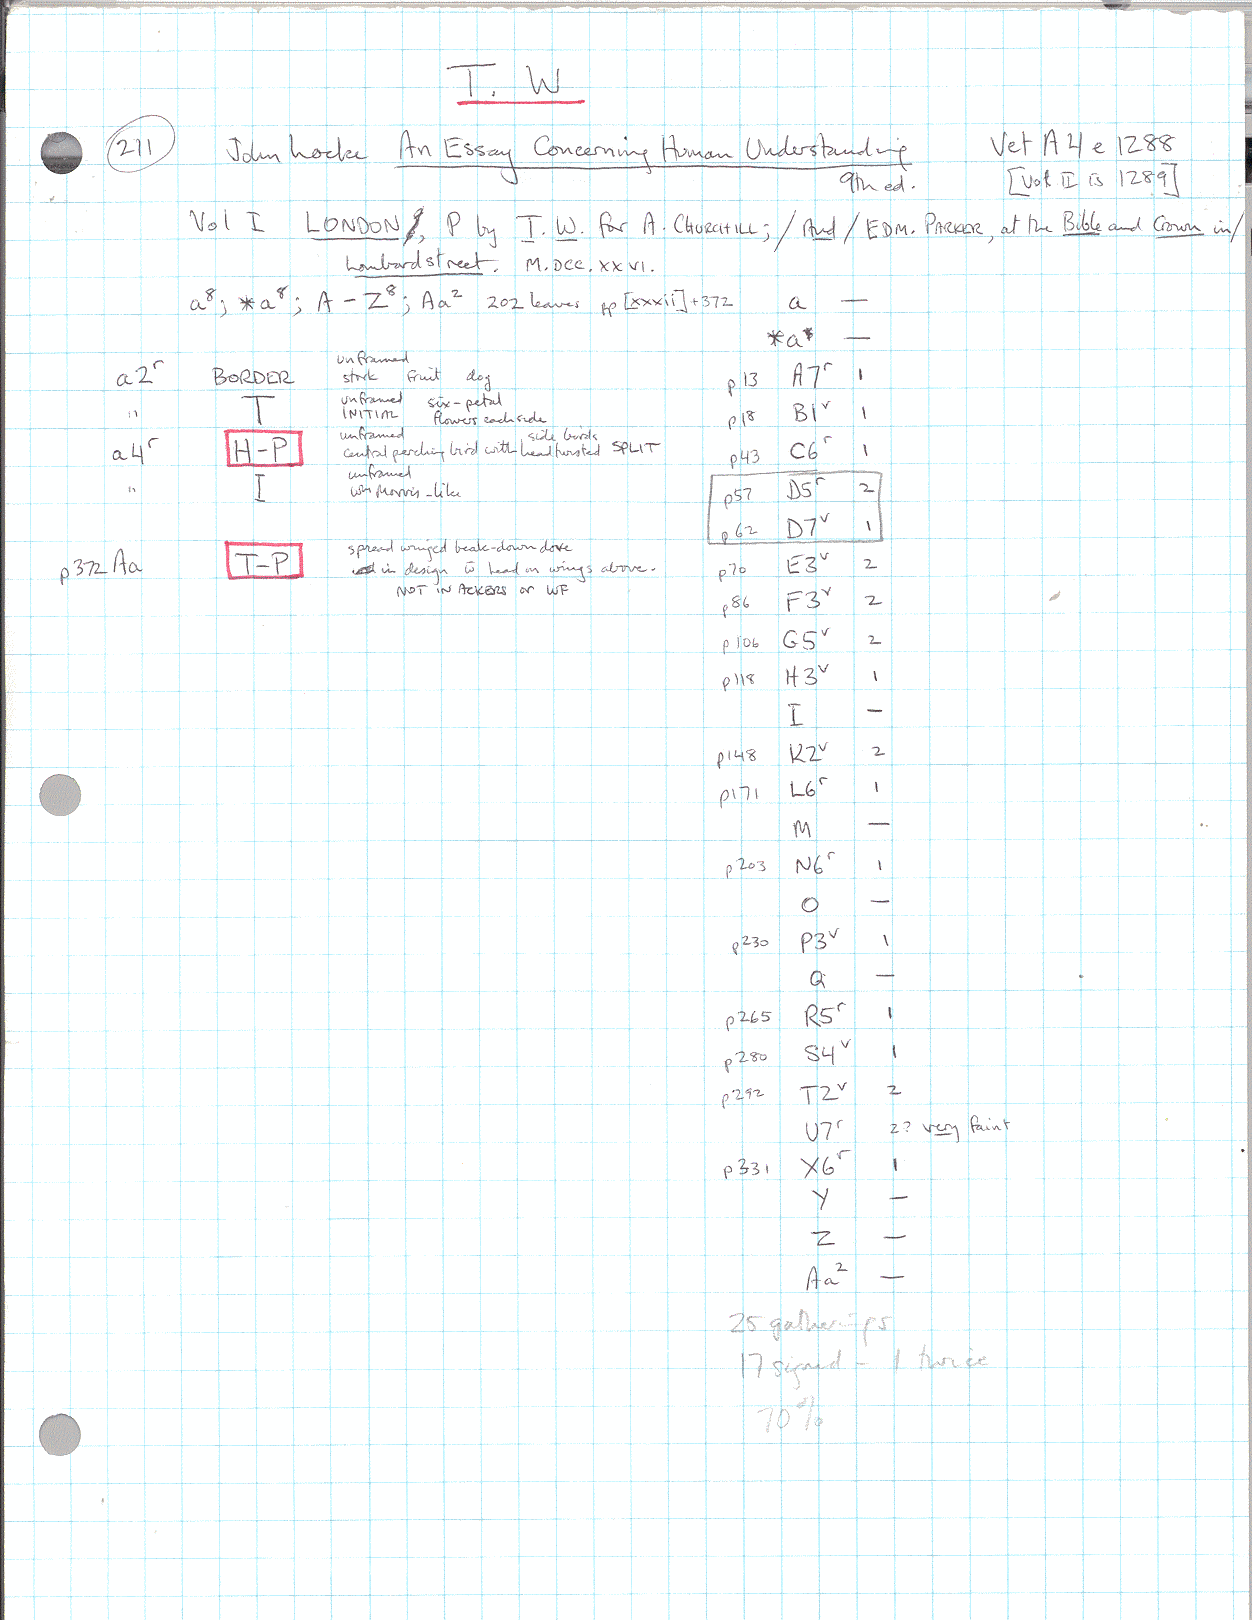 T. W
211 John Locke An Essay Concerning Human Understanding Vet A4 e 1288
9th ed. [Vol II is 1289]
Vol I LONDON, P by T. W. for A. CHURCHILL; / And / EDM. PARKER, at the Bible and Crown in /
Lombard street. M.DCC.XXVI.
a⁸; *a⁸; A – Z⁸; Aa² 202 leaves pp [xxxii]+372
a —
*a⁸ —
a2ʳ BORDER unframed stork fruit dog
" T unframed six-petal
INITIAL flowers each side
a4ʳ H-P unframed side birds
central perching bird with head twisted SPLIT
" I unframed
Wm Morris-like
p372 Aa T-P spread winged beak-down dove
in design to head on wings above.
NOT IN ACKERS or WF
p13 A7ʳ 1
p18 B1ᵛ 1
p43 C6ʳ 1
p57 D5ʳ 2
p62 D7ᵛ 1
p70 E3ᵛ 2
p86 F3ᵛ 2
p106 G5ᵛ 2
p118 H3ᵛ 1
I —
p148 K2ᵛ 2
p171 L6ʳ 1
M —
p203 N6ʳ 1
O —
p230 P3ᵛ 1
Q —
p265 R5ʳ 1
p280 S4ᵛ 1
p292 T2ᵛ 2
U7ʳ 2? very faint
p331 X6ʳ 1
Y —
Z —
Aa² —
25 gatherings
17 signed – 1 twice
70%